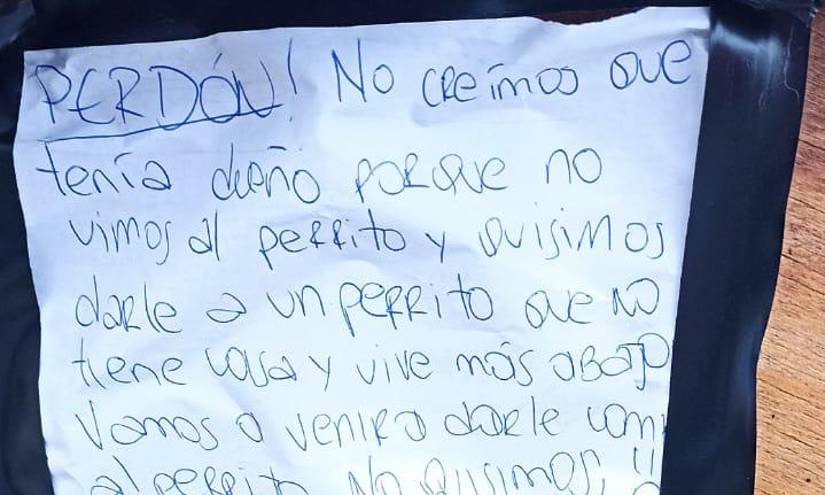 PERDÓN! No creímos que
tenía dueño porque no
vimos al perrito y quisimos
darle a un perrito que no
tiene casa y vive más abajo
Vamos a venir a darle comi
al perrito No quisimos